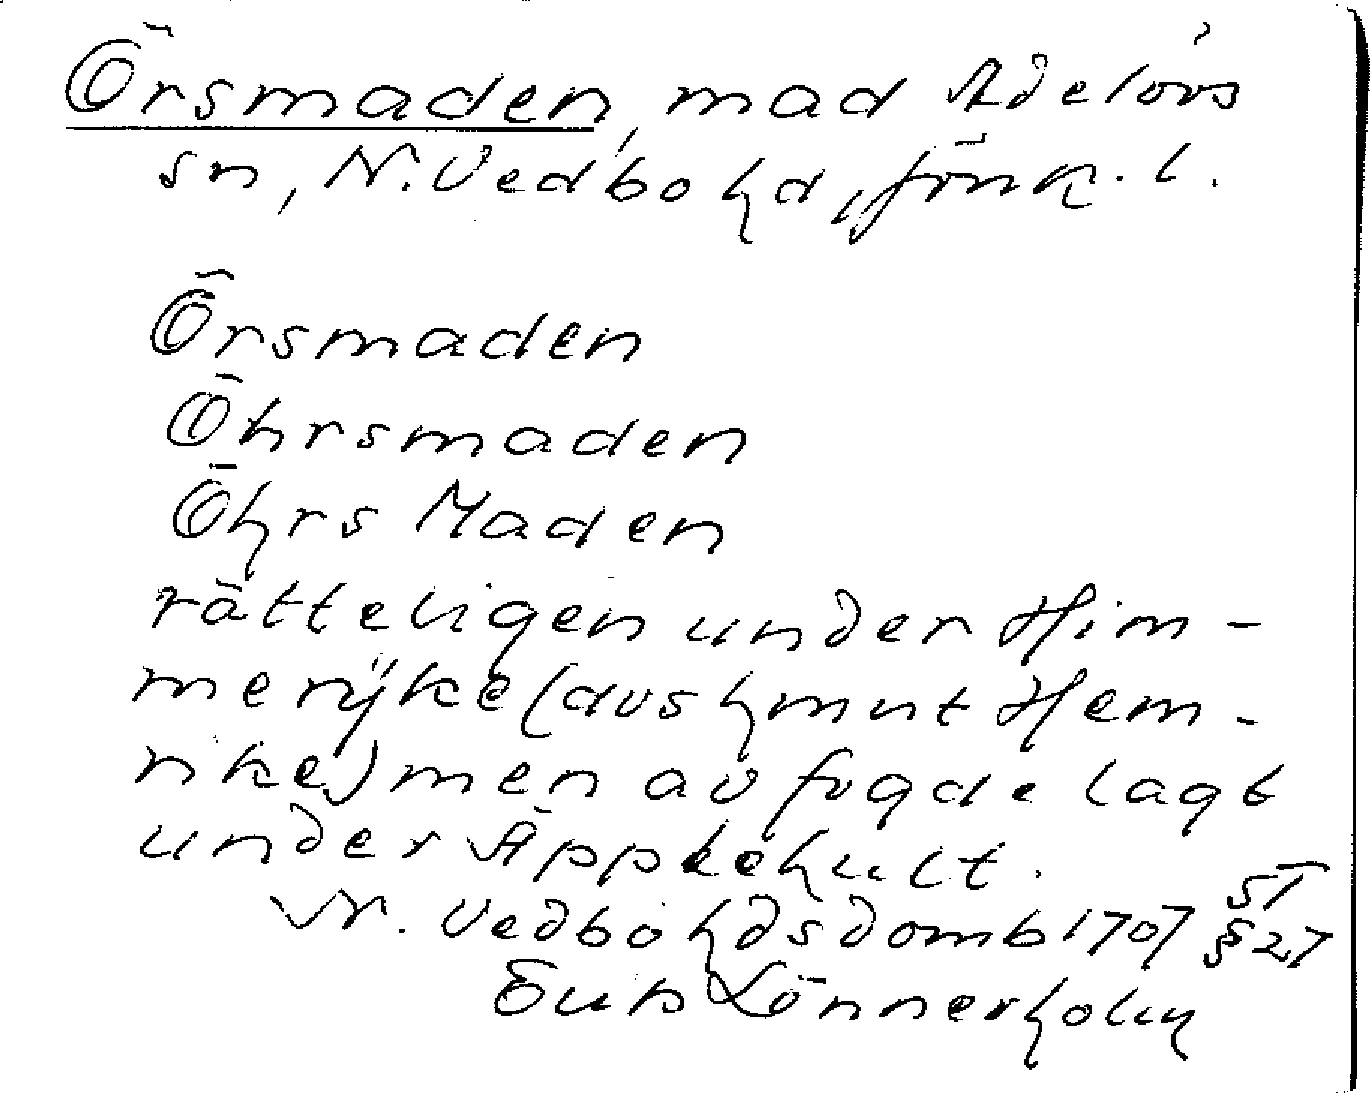 Örsmaden, mad Adelövs
sn, N. Vedbo hd, Jönk. l.
Örsmaden
Öhrsmaden
Öhrs Maden
rätteligen under Him-
merÿke (avs hmnt Hem-
rike) men av fogde lagt
under Äpplehult.
N. Vedbo hds domb 1707 ST § 27
Lönnerholm